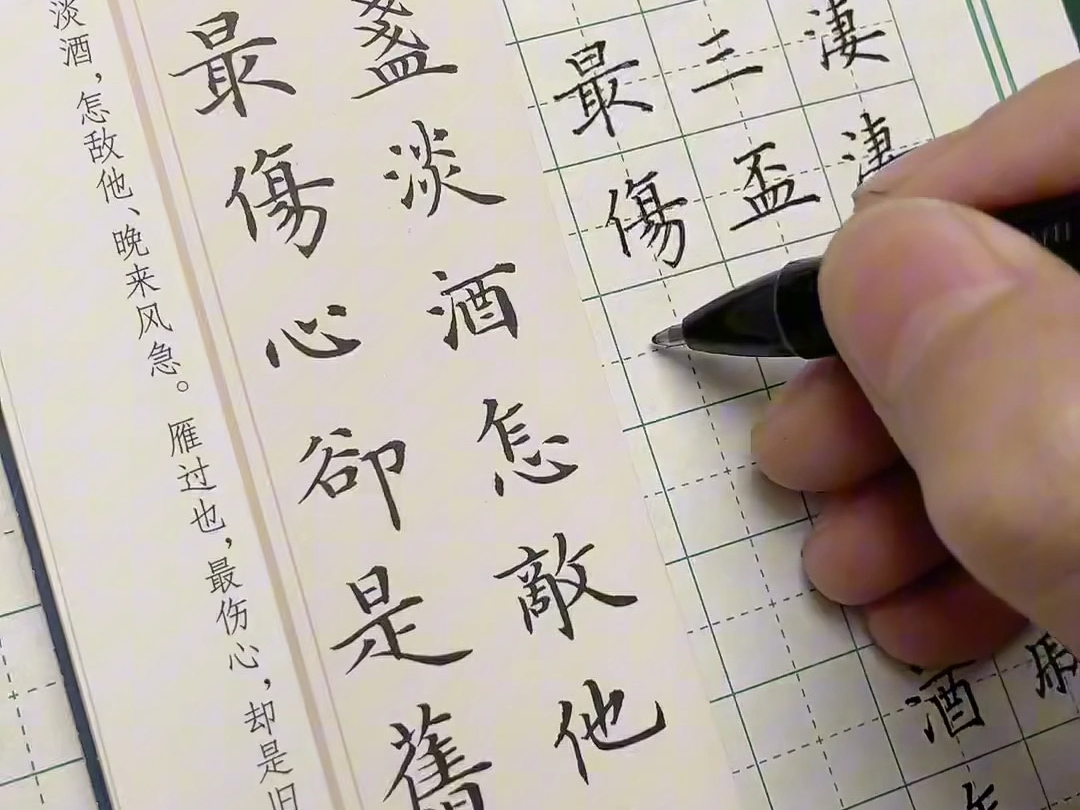 淒淒
三盃酒
最傷
盞淡酒怎敵他
最傷心卻是舊
淡酒，怎敌他、晚来风急。雁过也，最伤心，却是旧